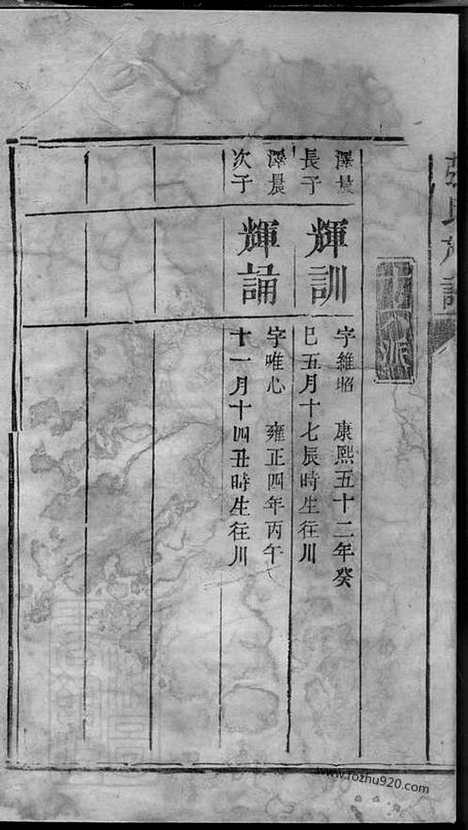 氏族譜
澤晨
長子
輝訓
字維昭 康熙五十二年癸
巳五月十七辰時生往川
澤晨
次子
輝誦
字唯心 雍正四年丙午
十一月十四丑時生往川
www.fozhu920.com